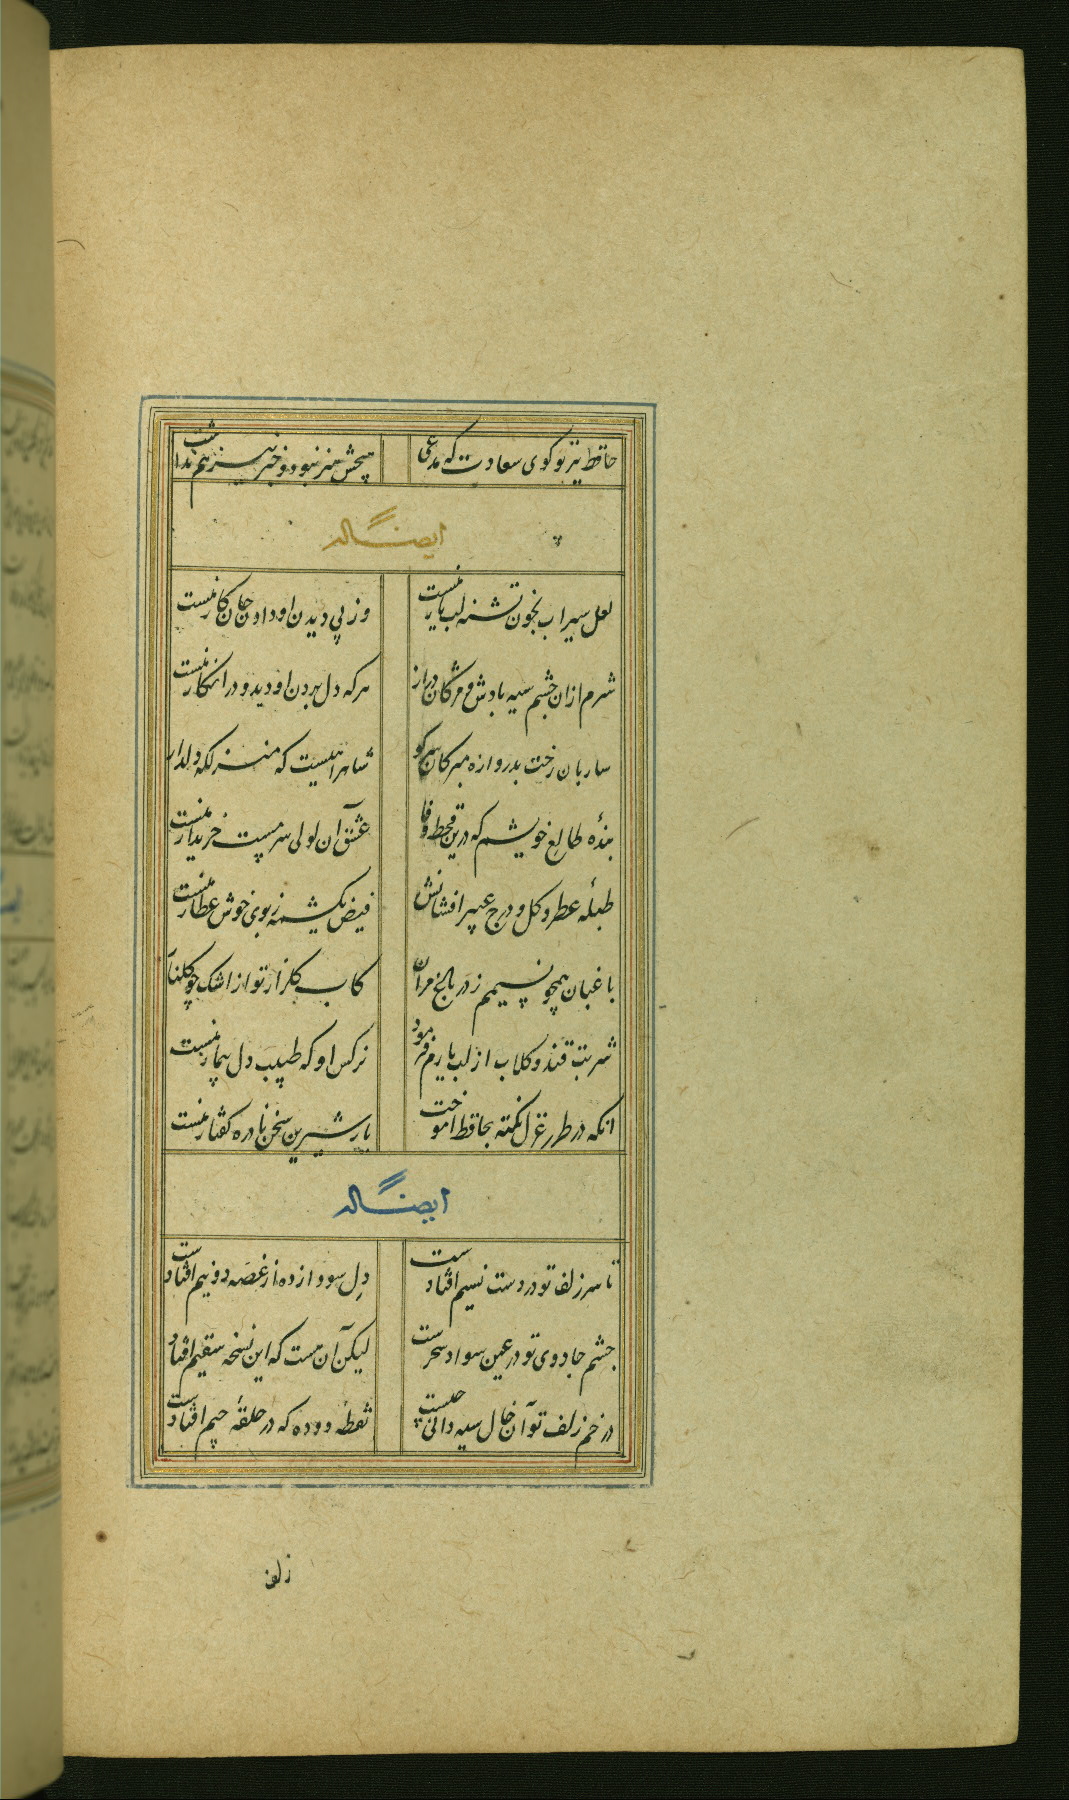 حافظ ببر تو کوی سعادت که مدعی
هیچش هنر نبود و خبر نیز هم نداشت
ایضاً له
لعل سیراب بخون تشنه لب یار منست
وز پی دیدن او دادن جان کار منست
شرم ازان چشم سیه بادش و مژگان دراز
هر که دل بردن او دید و در انکار منست
ساربان رخت بدروازه مبر کان سر کو
شاهراهیست که منزلکه دلدار
بندهٔ طالع خویشم که درین قحط وفا
عشق آن لولی سرمست خریدار منست
طبلهٔ عطر و کل و درج عبیر افشانش
فیض یک شمه ز بوی خوش عطار منست
باغبان همچو نسیمم ز در باغ مران
کاب کلزار تو از اشک چو کلنار
شربت قند و کلاب از لب یارم فرمود
نرکس او که طبیب دل بیمار منست
انکه در طرز غزل نکته بحافظ اموخت
یار شیرین سخن نادره کفتار منست
ایضاً له
تا سر زلف تو در دست نسیم افتادست
دل سودازده از غصه دو نیم افتادست
چشم جادوی تو در عین سواد سحرست
لیکن آن هست که این نسخه سقیم افتاد
در خم زلف تو آن خال سیه دانی چیست
نقطهٔ دوده که در حلقهٔ جیم افتادست
زلف